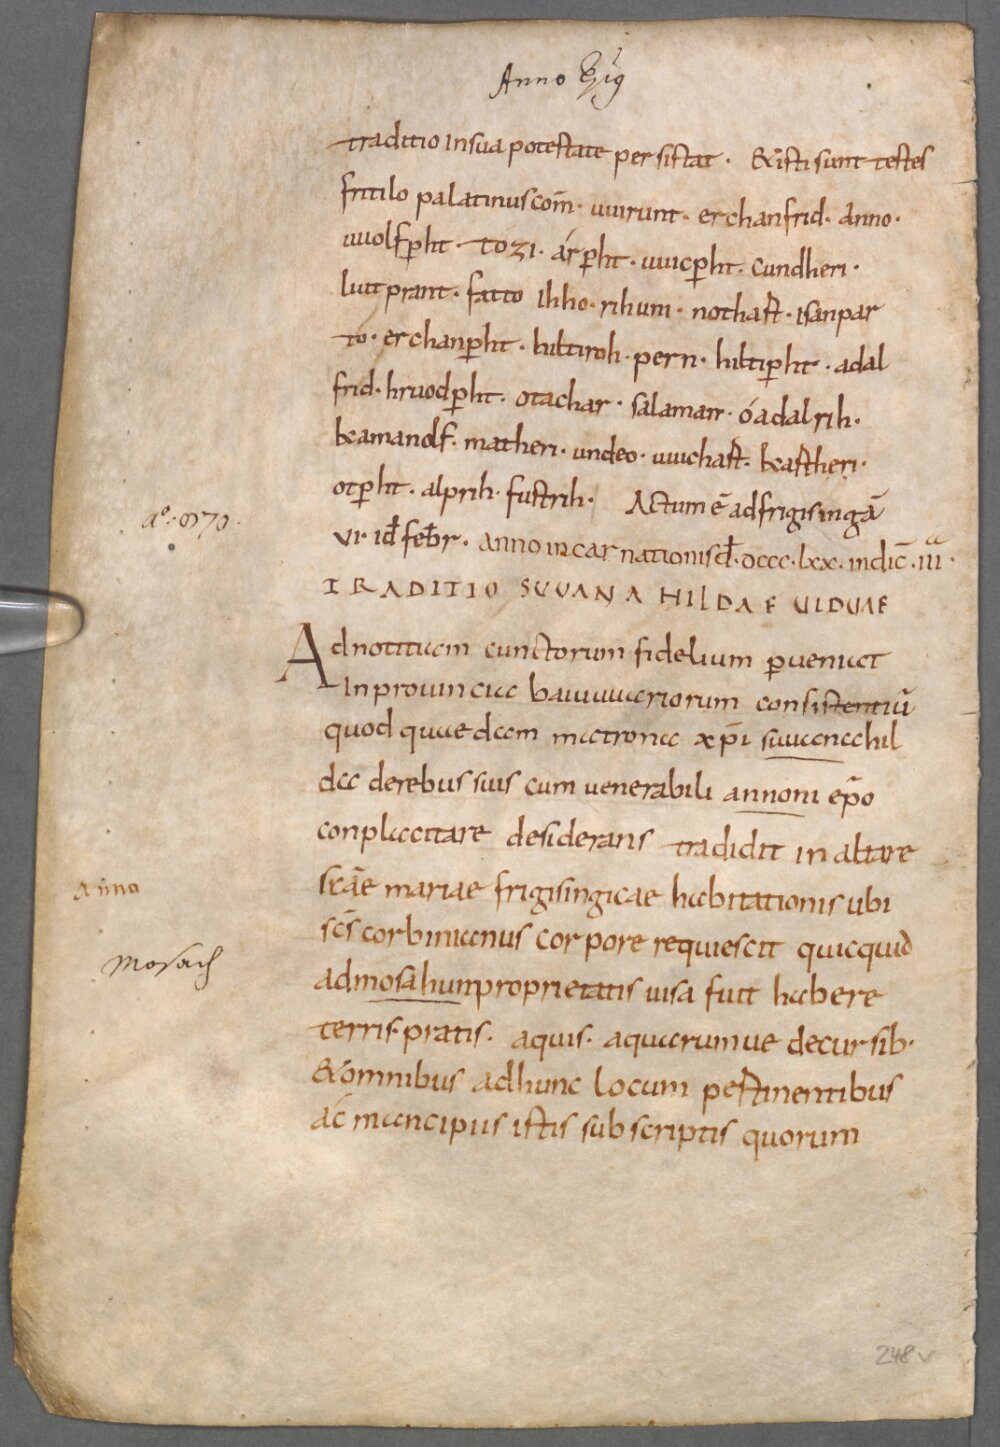 Anno Ep̄s
traditio in sua potestate persistat. Et isti sunt testes
fritilo palatinus com̄. uuirunt. erchanfrid. Anno.
uuolfp̲ht. tózi. árp̲ht. uuicp̲ht. cundheri.
luitprant. fatto ihho. rihuni. nothaft. isanpar
to. erchanp̲ht. hiltiroh. pern. hiltip̲ht. adal
frid. hruodp̲ht. otachar. salaman. óadalrih.
keamanolf. matheri. undeo. uuichaft. keastheri.
otp̲ht. alprih. fustrih. Actum ē ad frigisingā
VI. id̄ feb̄r. anno incarnationis d̄. dccc. lxx. indic̄. iii.
aº. 870.
TRADITIO SVUANAHILDAE VIDUAE
Ad notitiam cunctorum fidelium p̲ueniat
In prouincia baiuuuariorum consistentiū
quod quaedam matrona xp̄i suuanahil
da de rebus suis cum uenerabili annoni ep̄o
conplacitare desiderans tradidit in altare
scāe mariae frigisingicae habitationis ubi
Anno
sc̄s corbinianus corpore requiescit quicquid
Mosach
ad mosahun proprietatis uisa fuit habere
terris. pratis. aquis. aquarumue decursib.
Et omnibus ad hunc locum pertinentibus
ác mancipiis istis subscriptis quorum
248v